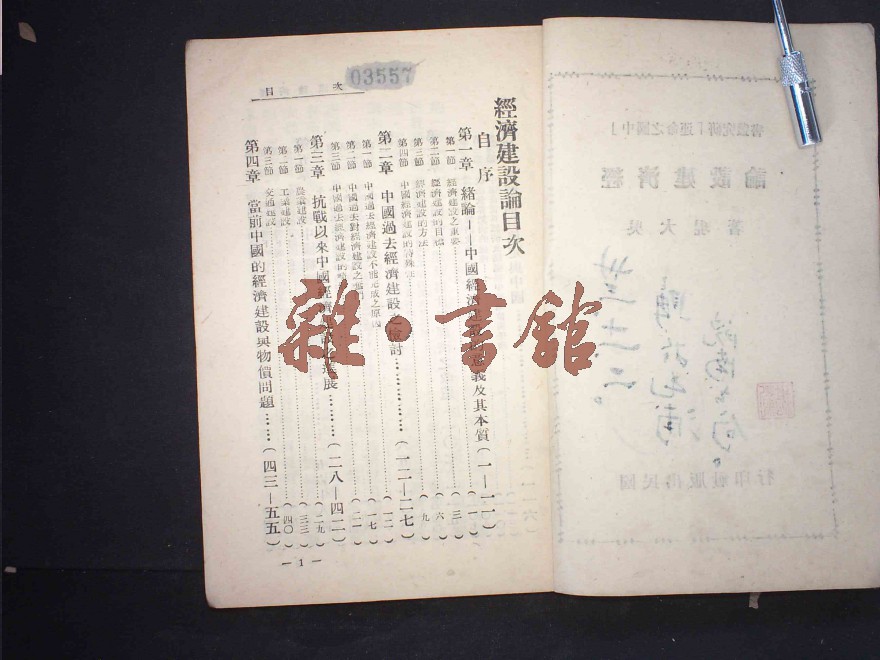 經濟建設論目次
自序
第一章 緒論——中國經濟建設 義及其本質(一—一一)
第一節 經濟建設之重要(一)
第二節 經濟建設的目標(三)
第三節 經濟建設的方法(六)
第四節 中國經濟建設的特殊 (九)
第二章 中國過去經濟建設之檢討…………(一二—二七)
第一節 中國過去經濟建設不能完成之原因(一二)
第二節 中國過去對經濟建設之 (一七)
第三節 中國過去經濟建設的 (二一)
第三章 抗戰以來中國經濟 展………(二八—四二)
第一節 農業建設(二九)
第二節 工業建設(三三)
第三節 交通建設(四〇)
第四章 當前中國的經濟建設與物價問題……(四三—五五)
目次
— 1 —
03557
雜·書館
「中國之命運」研究叢書
經濟建設論
吳大琨著
國民圖書出版社印行